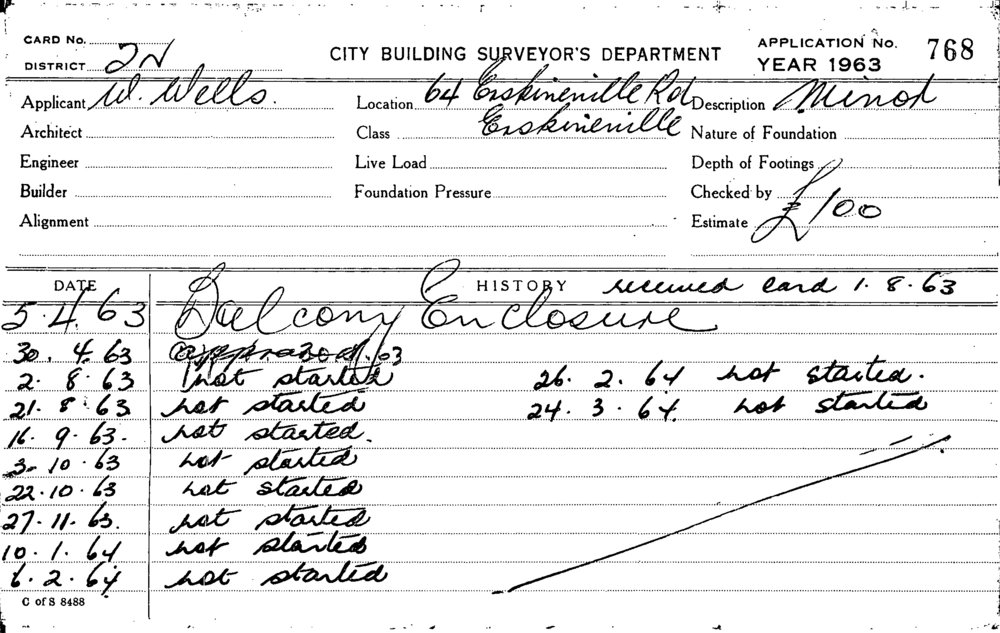 CARD No.
DISTRICT 2N
CITY BUILDING SURVEYOR'S DEPARTMENT
APPLICATION No. 768
YEAR 1963
Applicant W. Wells. Location 64 Erskineville Rd Description Minor
Architect Class Erskineville Nature of Foundation
Engineer Live Load Depth of Footings
Builder Foundation Pressure Checked by
Alignment Estimate £100
DATE HISTORY received card 1.8.63
5.4.63 Balcony Enclosure
30.4.63 approved
2.8.63 not started 26.2.64 not started.
21.8.63 not started 24.3.64. not started
16.9.63. not started.
3.10.63 not started
22.10.63 not started
27.11.63. not started
10.1.64 not started
6.2.64 not started
C of S 8488